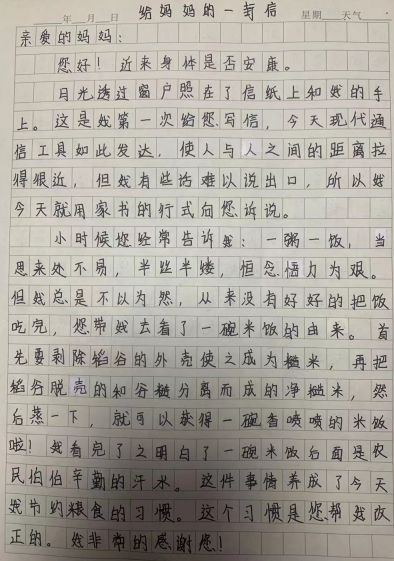 给妈妈的一封信
年 月 日 星期 天气
亲爱的妈妈：
您好！近来身体是否安康。
月光透过窗户照在了信纸上和我的手
上。这是我第一次给您写信，今天现代通
信工具如此发达，使人与人之间的距离拉
得很近，但我有些话难以说出口，所以我
今天就用家书的行式向您诉说。
小时候您经常告诉我：一粥一饭，当
思来处不易，半丝半缕，恒念物力为艰。
但我总是不以为然，从来没有好好的把饭
吃完，您带我去看了一碗米饭的由来。首
先要剥除稻谷的外壳使之成为糙米，再把
稻谷脱壳的和谷糙分离而成的净糙米，然
后蒸一下，就可以获得一碗香喷喷的米饭
啦！我看完了之明白了一碗米饭后面是农
民伯伯辛勤的汗水。这件事情养成了今天
我节约粮食的习惯。这个习惯是您帮我改
正的。我非常的感谢您！